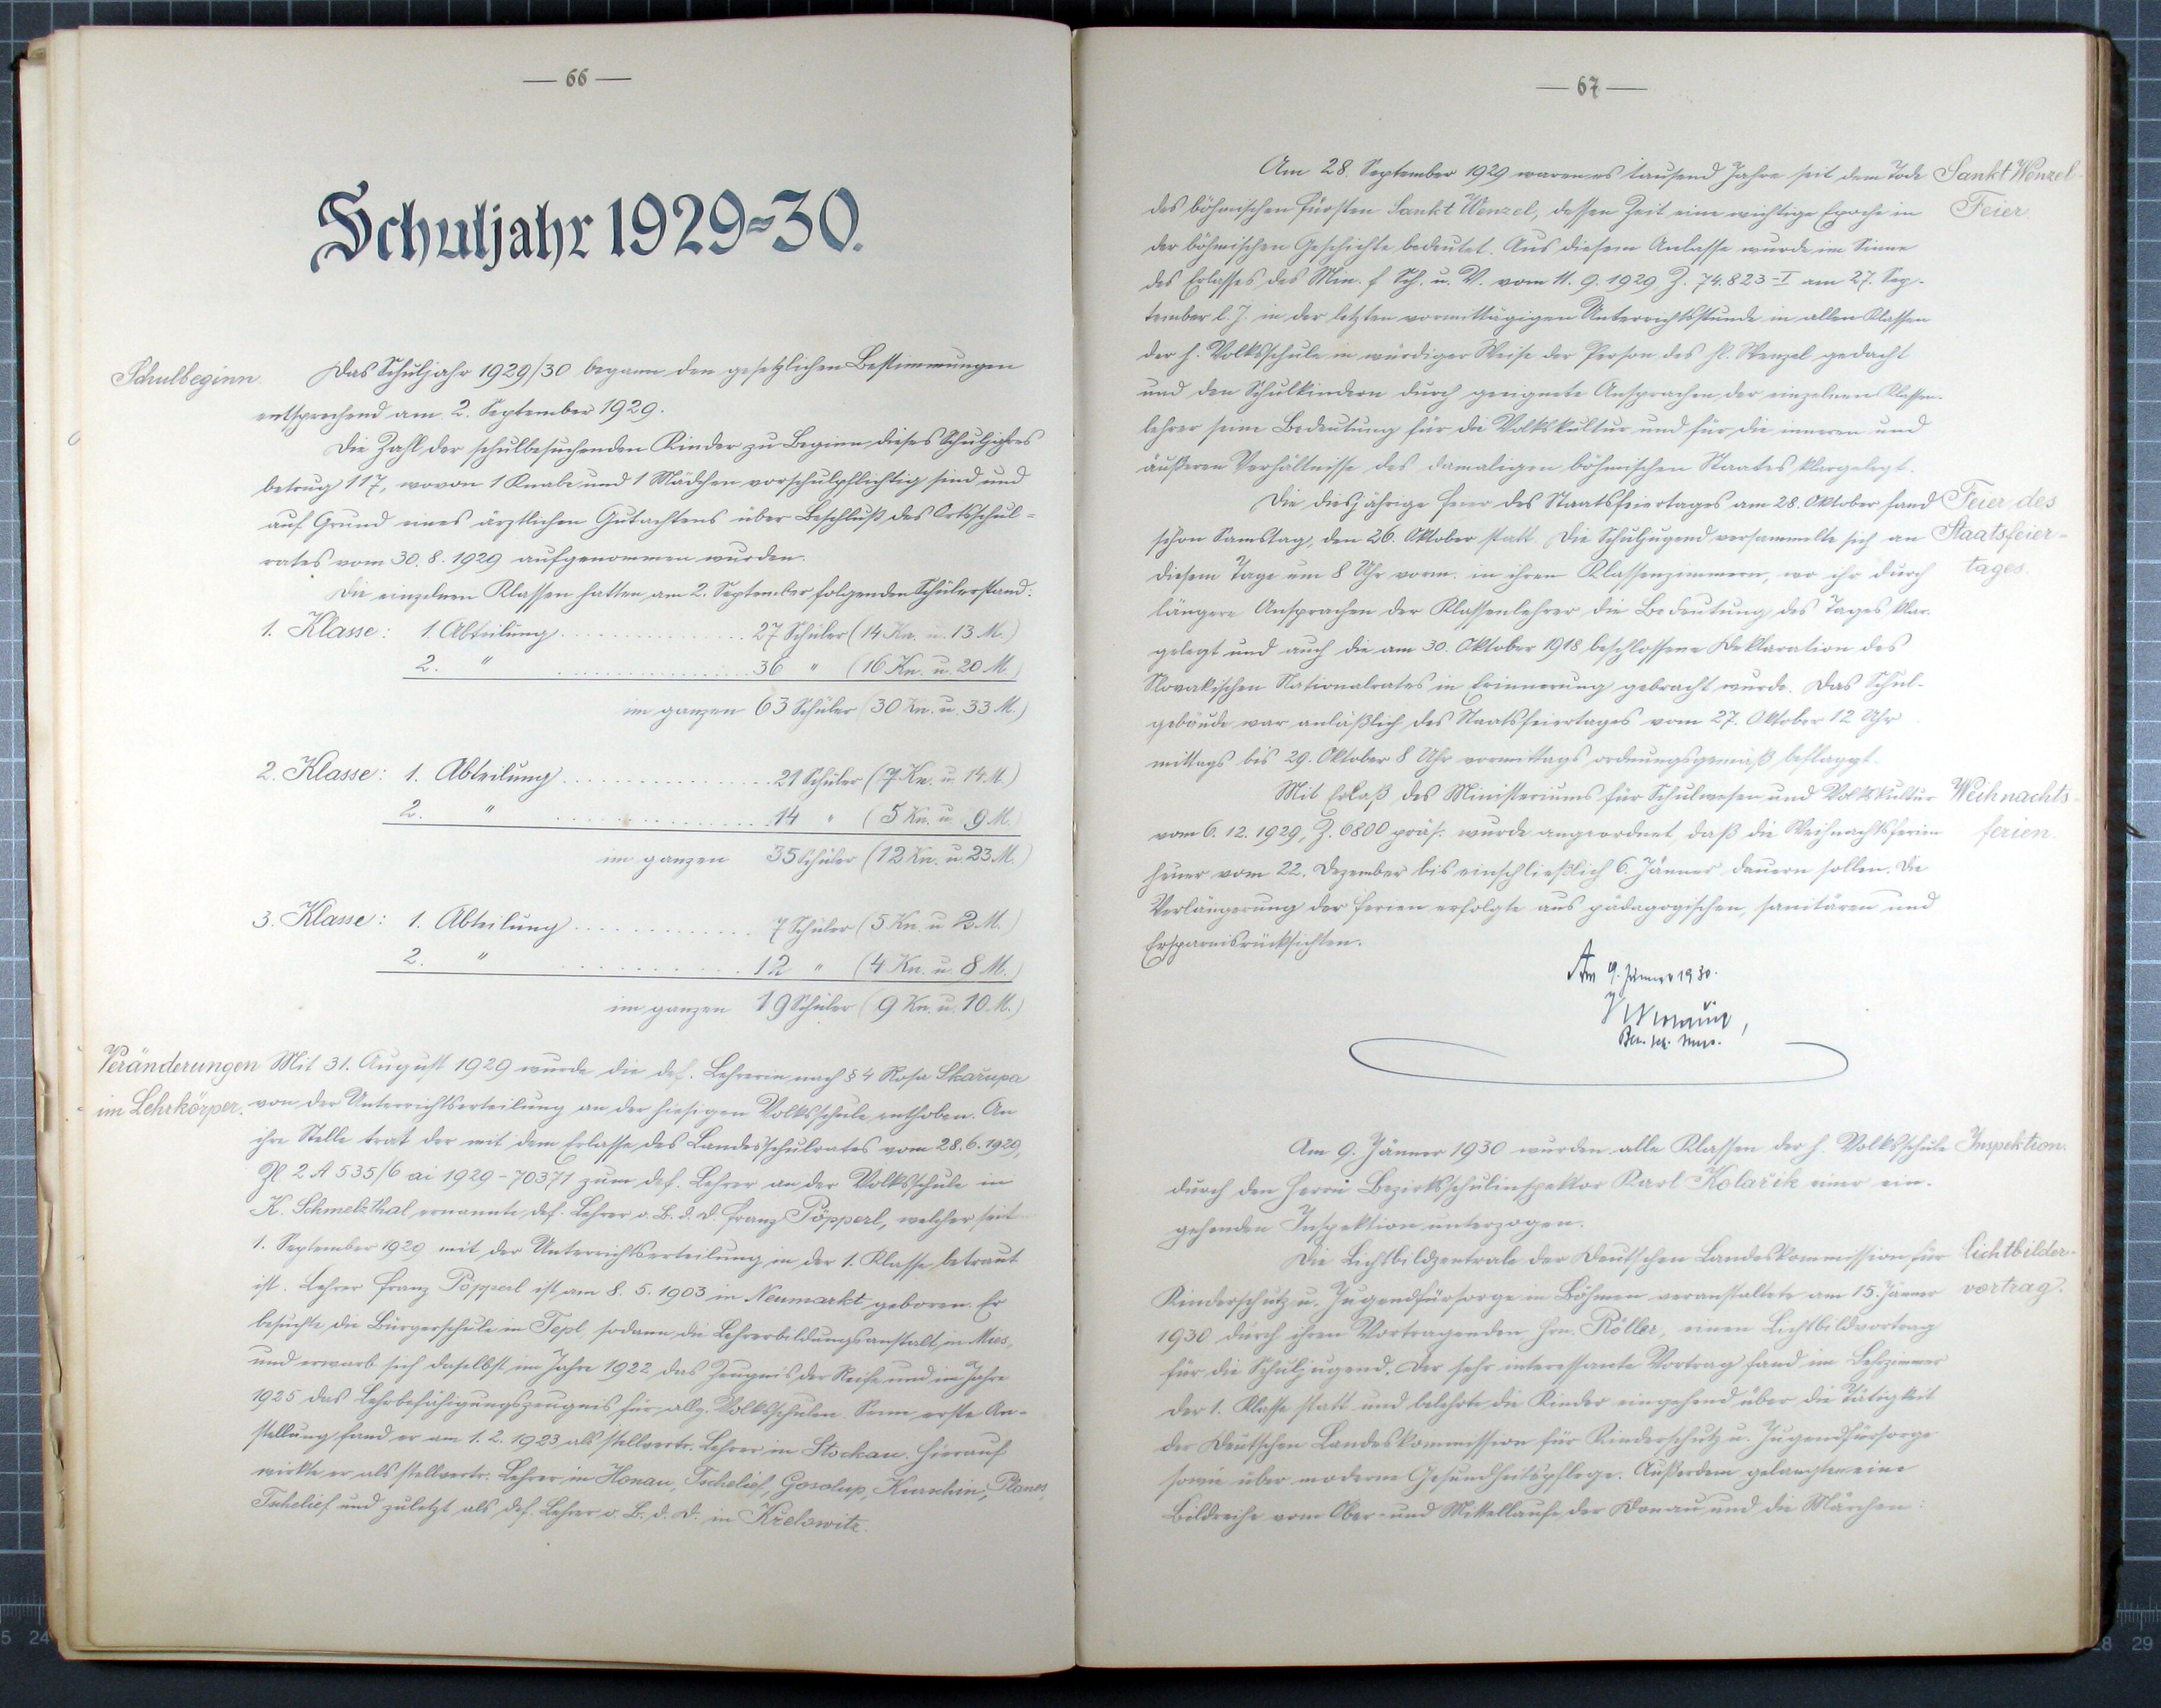 — 66 —
Schuljahr 1929-30.
Schulbeginn.
Das Schuljahr 1929/30 begann den gesetzlichen Bestimmungen
entsprechend am 2. September 1929.
Die Zahl der schulbesuchenden Kinder zu Beginn dieses Schuljahres
betrug 117, wovon 1 Knabe und 1 Mädchen vorschulpflichtig sind und
auf Grund eines ärztlichen Gutachtens über Beschluß des Ortsschul-
rates vom 30. 8. 1929 aufgenommen wurden.
Die einzelnen Klassen hatten am 2. September folgenden Schülerstand:
1. Klasse: 1. Abteilung . . . . . . . . . . . . . . . 27 Schüler (14 Kn. u. 13 M.)
2. " . . . . . . . . . . . . . . . 36 " (16 Kn. u. 20 M.)
im ganzen 63 Schüler (30 Kn. u. 33 M.)
2. Klasse: 1. Abteilung . . . . . . . . . . . . . . . 21 Schüler (7 Kn. u. 14 M.)
2. " . . . . . . . . . . . . . . . 14 " (5 Kn. u. 9 M.)
im ganzen 35 Schüler (12 Kn. u. 23 M.)
3. Klasse: 1. Abteilung . . . . . . . . . . . . . 7 Schüler (5 Kn. u. 2 M.)
2. " . . . . . . . . . . . 12 " (4 Kn. u. 8 M.)
im ganzen 19 Schüler (9 Kn. u. 10 M.)
Veränderungen
im Lehrkörper.
Mit 31. August 1929 wurde die def. Lehrerin nach § 4 Rosa Skařupa
von der Unterrichtserteilung an der hiesigen Volksschule enthoben. An
ihre Stelle trat der mit dem Erlasse des Landesschulrates vom 28. 6. 1929,
Zl. 2 A 535/6 ai 1929 - 70371 zum def. Lehrer an der Volksschule in
K. Schmelzthal ernannte def. Lehrer o. B. d. D. Franz Pöpperl, welcher seit
1. September 1929 mit der Unterrichtserteilung in der 1. Klasse betraut
ist. Lehrer Franz Pöpperl ist am 8. 5. 1903 in Neumarkt geboren. Er
besuchte die Bürgerschule in Tepl, sodann die Lehrerbildungsanstalt in Mies,
und erwarb sich daselbst im Jahre 1922 das Zeugnis der Reife und im Jahre
1925 das Lehrbefähigungszeugnis für allg. Volksschulen. Seine erste An-
stellung fand er am 1. 2. 1923 als stellvertr. Lehrer in Stockau. Hierauf
wirkte er als stellvertr. Lehrer in Honau, Tschelief, Gosolup, Kurschin, Planes,
Tschelief und zuletzt als def. Lehrer o. B. d. D. in Křelowitz.
— 67 —
Am 28. September 1929 waren es tausend Jahre seit dem Tode
des böhmischen Fürsten Sankt Wenzel, dessen Zeit eine wichtige Epoche in
der böhmischen Geschichte bedeutet. Aus diesem Anlasse wurde im Sinne
des Erlasses des Min. f. Sch. u. V. vom 11. 9. 1929, Z. 74.823-I am 27. Sep-
tember l. J. in der letzten vormittägigen Unterrichtsstunde in allen Klassen
der h. Volksschule in würdiger Weise der Person des hl. Wenzel gedacht
und den Schulkindern durch geeignete Ansprachen der einzelnen Klassen-
lehrer seine Bedeutung für die Volkskultur und für die inneren und
äußeren Verhältnisse des damaligen böhmischen Staates klargelegt.
Sankt Wenzel-
Feier.
Die diesjährige Feier des Staatsfeiertages am 28. Oktober fand
schon Samstag, den 26. Oktober statt. Die Schuljugend versammelte sich an
diesem Tage um 8 Uhr vorm. in ihren Klassenzimmern, wo ihr durch
längere Ansprachen der Klassenlehrer die Bedeutung des Tages klar-
gelegt und auch die am 30. Oktober 1918 beschlossene Deklaration des
Slovakischen Nationalrates in Erinnerung gebracht wurde. Das Schul-
gebäude war anläßlich des Staatsfeiertages vom 27. Oktober 12 Uhr
mittags bis 29. Oktober 8 Uhr vormittags ordnungsgemäß beflaggt.
Feier des
Staatsfeier-
tages.
Mit Erlaß des Ministeriums für Schulwesen und Volkskultur
vom 6. 12. 1929, Z. 6800 präs. wurde angeordnet, daß die Weihnachtsferien
heuer vom 22. Dezember bis einschließlich 6. Jänner dauern sollen. Die
Verlängerung der Ferien erfolgte aus pädagogischen, sanitären und
Ersparnisrücksichten.
Weihnachts-
ferien.
Am 9. Jänner 1930.
Am 9. Jänner 1930 wurden alle Klassen der h. Volksschule
durch den Herrn Bezirksschulinspektor Karl Kolařik einer ein-
gehenden Inspektion unterzogen.
Inspektion.
Die Lichtbildzentrale der Deutschen Landeskommission für
Kinderschutz u. Jugendfürsorge in Böhmen veranstaltete am 15. Jänner
1930 durch ihren Vortragenden Hrn. Röller, einen Lichtbildvortrag
für die Schuljugend. Der sehr interessante Vortrag fand im Lehrzimmer
der 1. Klasse statt und belehrte die Kinder eingehend über die Tätigkeit
der Deutschen Landeskommission für Kinderschutz u. Jugendfürsorge
sowie über moderne Gesundheitspflege. Außerdem gelangten eine
Bildreihe vom Ober- und Mittellaufe der Donau und die Märchen:
Lichtbilder-
vortrag.